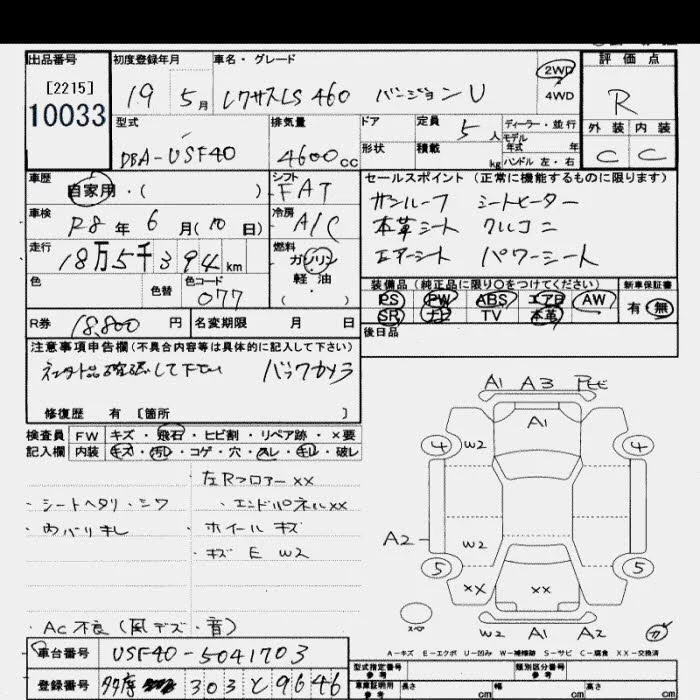 出品番号 初度登録年月 車名・グレード 2WD 評価点
[2215] 19 5月 レクサスLS460 バージョンU 4WD R
10033 型式 排気量 ドア 定員 5人 ディーラー・並行 外装 内装
DBA-USF40 4600cc 形状 積載 kg モデル年式 年 ハンドル 左・右 C C
車歴 自家用・( ) シフト FAT セールスポイント(正常に機能するものに限ります)
車検 R8年 6月(10日) 冷房 A/C サンルーフ シートヒーター
走行 18万5千394km 燃料 ガソリン 本革シート クルコン
色 色替 色コード 077 軽油 ( ) エアーシート パワーシート
装備品(純正品に限り○をつけてください) 新車保証書
PS PW ABS エアB AW 有・無
R券 18,800円 名変期限 月 日 SR ナビ TV 本革
注意事項申告欄(不具合内容等は具体的に記入して下さい) 後日品
バックカメラ
修復歴 有 [箇所 ]
検査員 FW キズ・飛石・ヒビ割・リペア跡・×要
記入欄 内装 キズ・汚レ・コゲ・穴・スレ・キレ・破レ
左Rフロアー××
・シートヘタリ・シワ ・エンドパネル××
・内バリキレ ・ホイールキズ
・キズ E W2
・AC不良(風デズ・音)
A1 A3
A1
4 W2 4
A2 W2
5 ×× ×× 5
W2 A1 A2
A-キズ E-エクボ U-凹み W-補修跡 S-サビ C-腐食 XX-交換済
車台番号 USF40-5041703
登録番号 303 と 9646
型式指定番号 参考 類別区分番号 参考
車庫証明用 参考 長さ cm 幅 cm 高さ cm